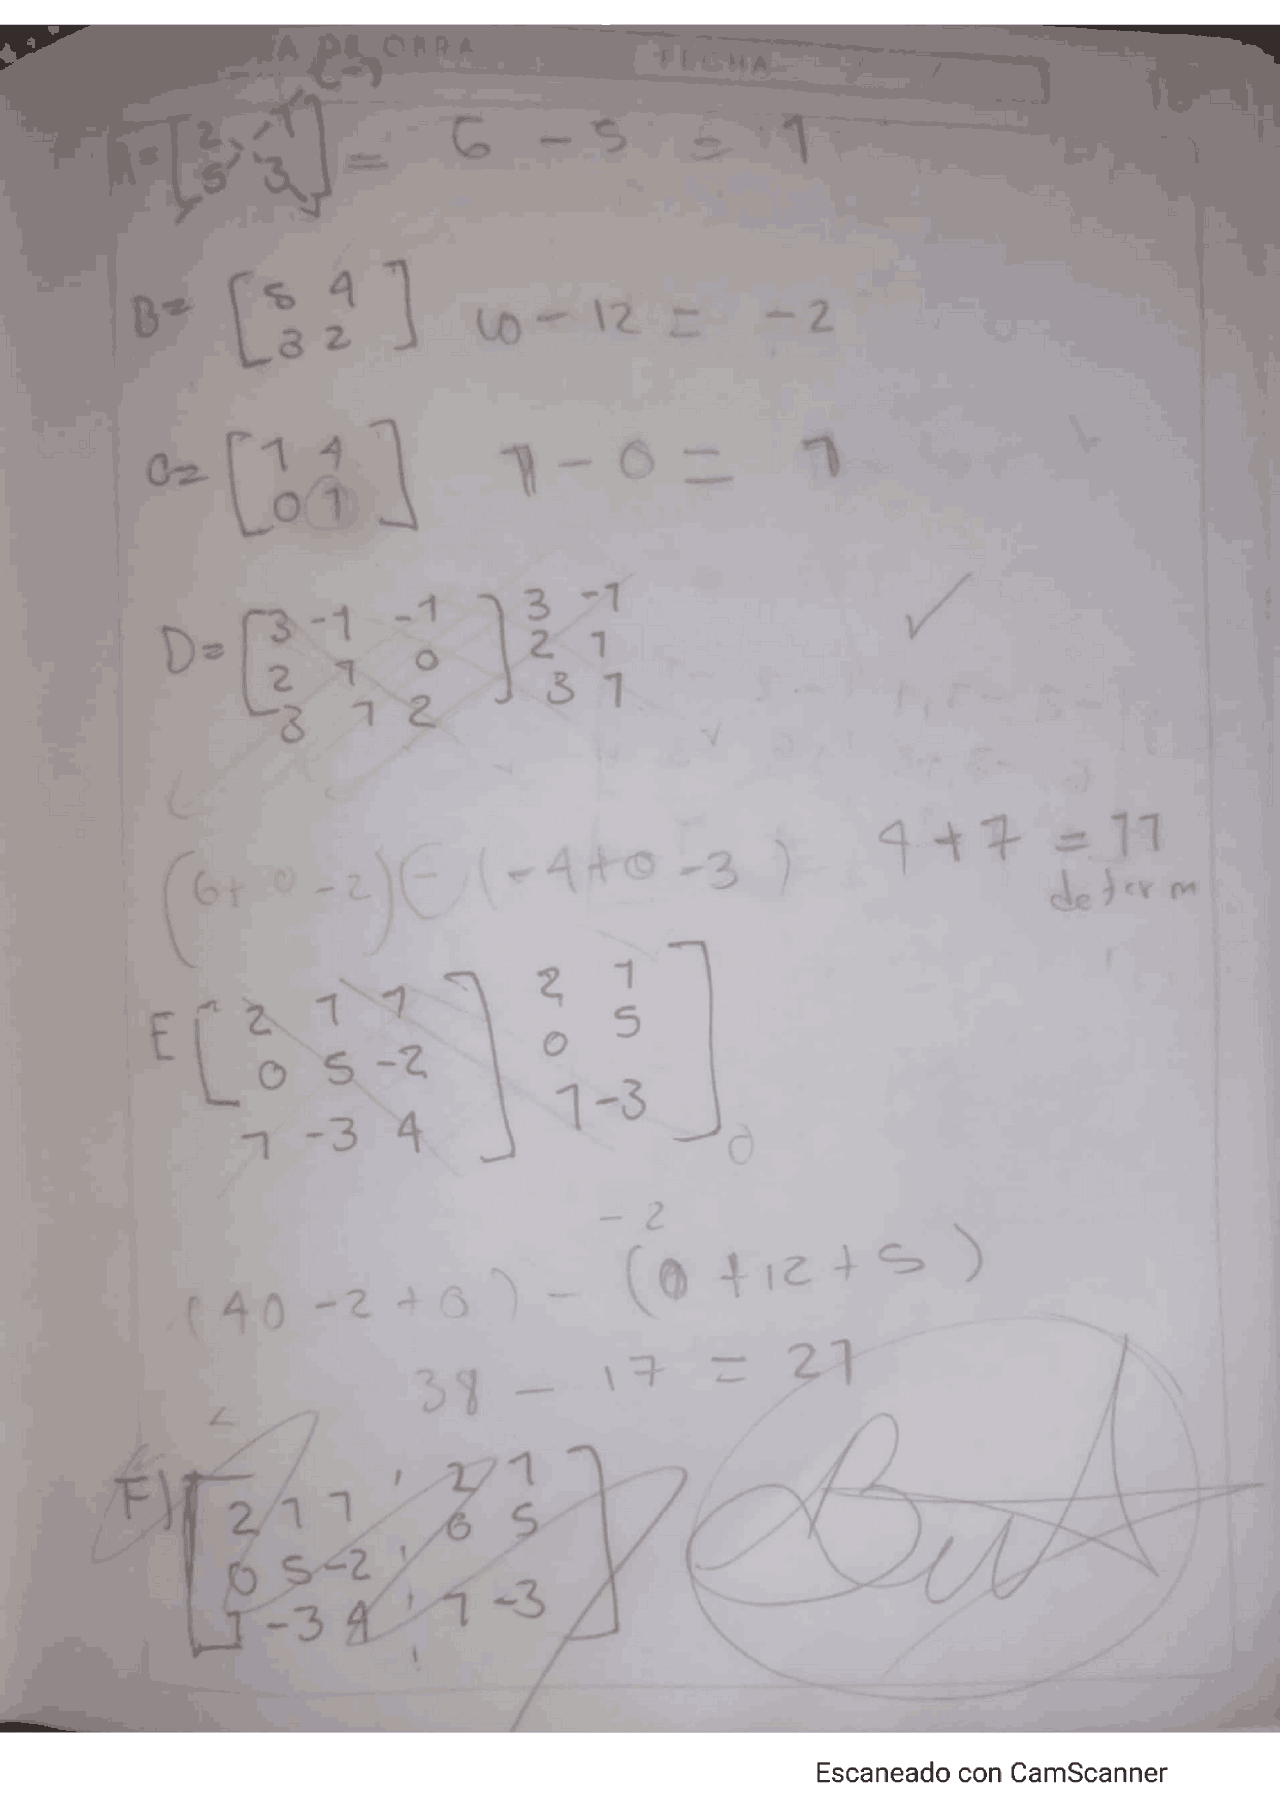 A DE OBRA
FECHA
(-)
A= [2 -1] = 6 - 5 = 1
5 3
B= [5 4] 10 - 12 = -2
3 2
C= [1 4] 1 - 0 = 1
0 1
D= [3 -1 -1] 3 -1
2 1 0 2 1
3 1 2 3 1
(6+0-2) - (-4+0-3) 4+7 = 11
determ
E [2 1 1] 2 1
0 5 -2 0 5
1 -3 4 1 -3
0
-2
(40 -2 + 0) - (0 + 12 + 5)
38 - 17 = 21
F) [2 1 1 2 1]
0 5 -2 0 5
1 -3 4 1 -3
Escaneado con CamScanner